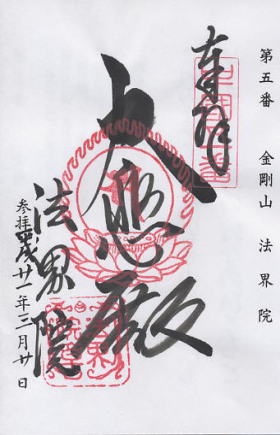 第五番 金剛山 法界院
奉拝
大悲殿
法界院
参拝平成廿一年三月廿日